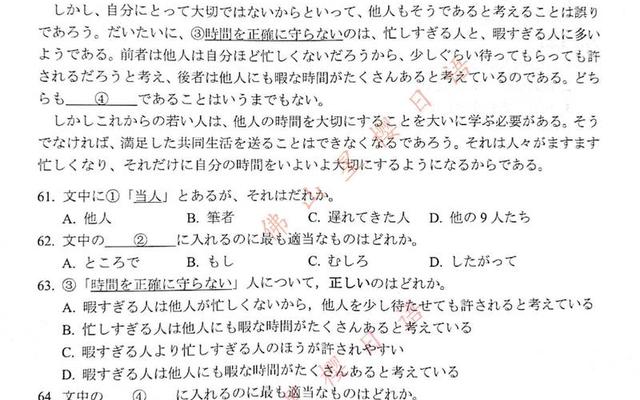 しかし、自分にとって大切ではないからといって、他人もそうであると考えることは誤り
であろう。だいたいに、③時間を正確に守らないのは、忙しすぎる人と、暇すぎる人に多い
ようである。前者は他人は自分ほど忙しくないだろうから、少しぐらい待ってもらっても許
されるだろうと考え、後者は他人にも暇な時間がたくさんあると考えているのである。どち
らも ④ であることはいうまでもない。
しかしこれからの若い人は、他人の時間を大切にすることを大いに学ぶ必要がある。そう
でなければ、満足した共同生活を送ることはできなくなるであろう。それは人々がますます
忙しくなり、それだけに自分の時間をいよいよ大切にするようになるからである。
61. 文中に①「当人」とあるが、それはだれか。
A. 他人 B. 筆者 C. 遅れてきた人 D. 他の9人たち
62. 文中の ② に入れるのに最も適当なものはどれか。
A. ところで B. もし C. むしろ D. したがって
63. ③「時間を正確に守らない」人について，正しいのはどれか。
A. 暇すぎる人は他人が忙しくないから，他人を少し待たせても許されると考えている
B. 忙しすぎる人は他人にも暇な時間がたくさんあると考えている
C. 暇すぎる人より忙しすぎる人のほうが許されやすい
D. 暇すぎる人は他人にも暇な時間がたくさんあると考えている
64. 文中の ④ に入れるのに最も適当なものはどれか。
佛山星樱日语
樱日语